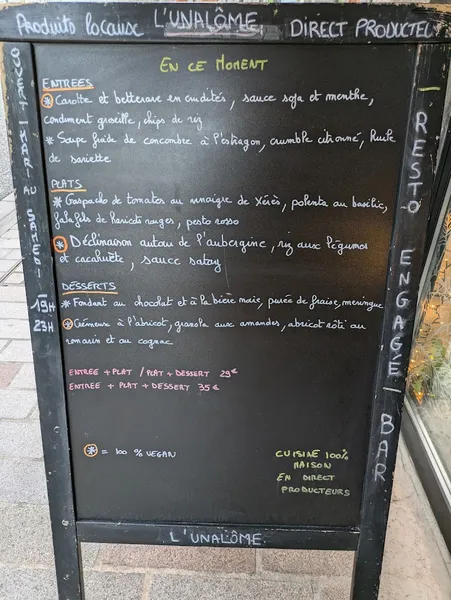 Produits locaux L'UNALÔME DIRECT PRODUCTEUR
OUVERT MARDI AU SAMEDI
19H
23H
RESTO ENGAGÉE BAR
EN CE MOMENT
ENTREES
* Carotte et betterave en crudités, sauce soja et menthe,
condiment groseille, chips de riz
* Soupe froide de concombre à l'estragon, crumble citronné, huile
de sariette
PLATS
* Gaspacho de tomates au vinaigre de Xérès, polenta au basilic,
falafels de haricots rouges, pesto rosso
* Déclinaison autour de l'aubergine, riz aux légumes
et cacahuète, sauce satay
DESSERTS
* Fondant au chocolat et à la bière noire, purée de fraise, meringue
* Crémeux à l'abricot, granola aux amandes, abricot rôti au
romarin et au cognac
ENTREE + PLAT / PLAT + DESSERT 29€
ENTREE + PLAT + DESSERT 35€
* = 100 % VEGAN
CUISINE 100%
MAISON
EN DIRECT
PRODUCTEURS
L'UNALÔME